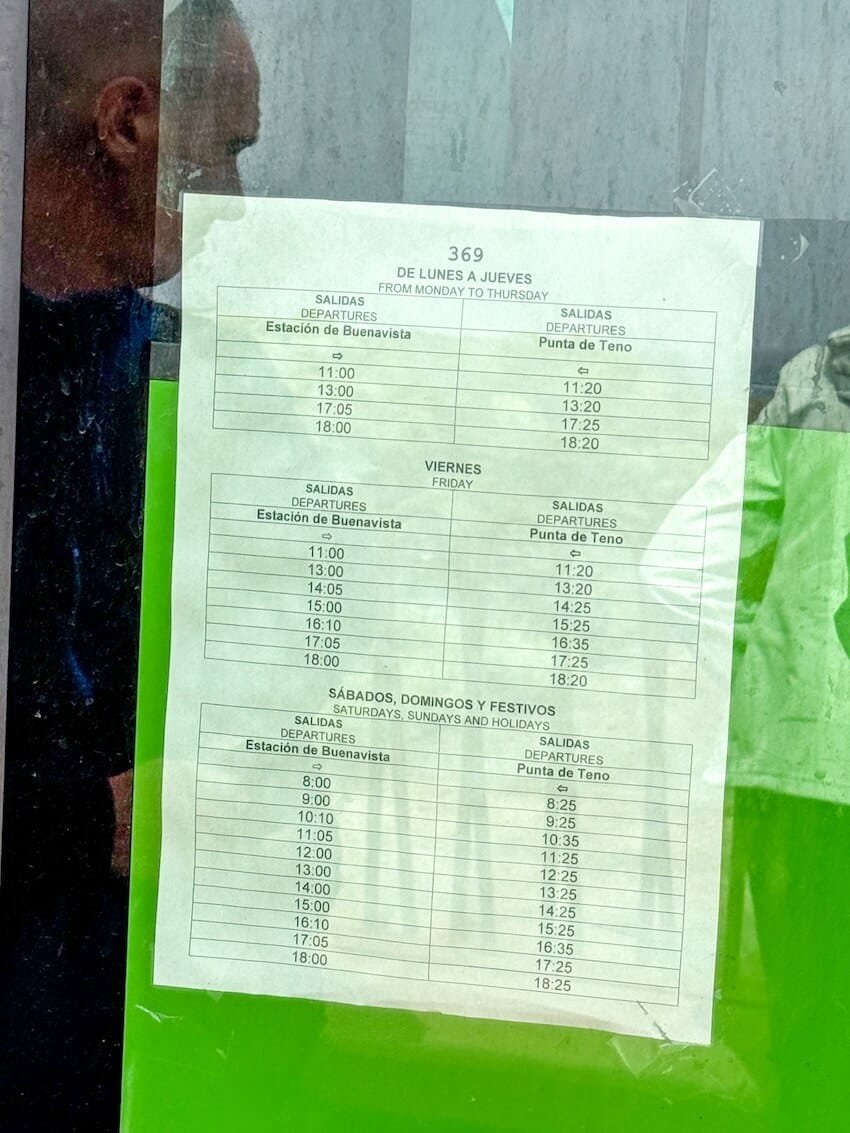 369
DE LUNES A JUEVES
FROM MONDAY TO THURSDAY
SALIDAS SALIDAS
DEPARTURES DEPARTURES
Estación de Buenavista Punta de Teno
⇨ ⇦
11:00 11:20
13:00 13:20
17:05 17:25
18:00 18:20
VIERNES
FRIDAY
SALIDAS SALIDAS
DEPARTURES DEPARTURES
Estación de Buenavista Punta de Teno
⇨ ⇦
11:00 11:20
13:00 13:20
14:05 14:25
15:00 15:25
16:10 16:35
17:05 17:25
18:00 18:20
SÁBADOS, DOMINGOS Y FESTIVOS
SATURDAYS, SUNDAYS AND HOLIDAYS
SALIDAS SALIDAS
DEPARTURES DEPARTURES
Estación de Buenavista Punta de Teno
⇨ ⇦
8:00 8:25
9:00 9:25
10:10 10:35
11:05 11:25
12:00 12:25
13:00 13:25
14:00 14:25
15:00 15:25
16:10 16:35
17:05 17:25
18:00 18:25